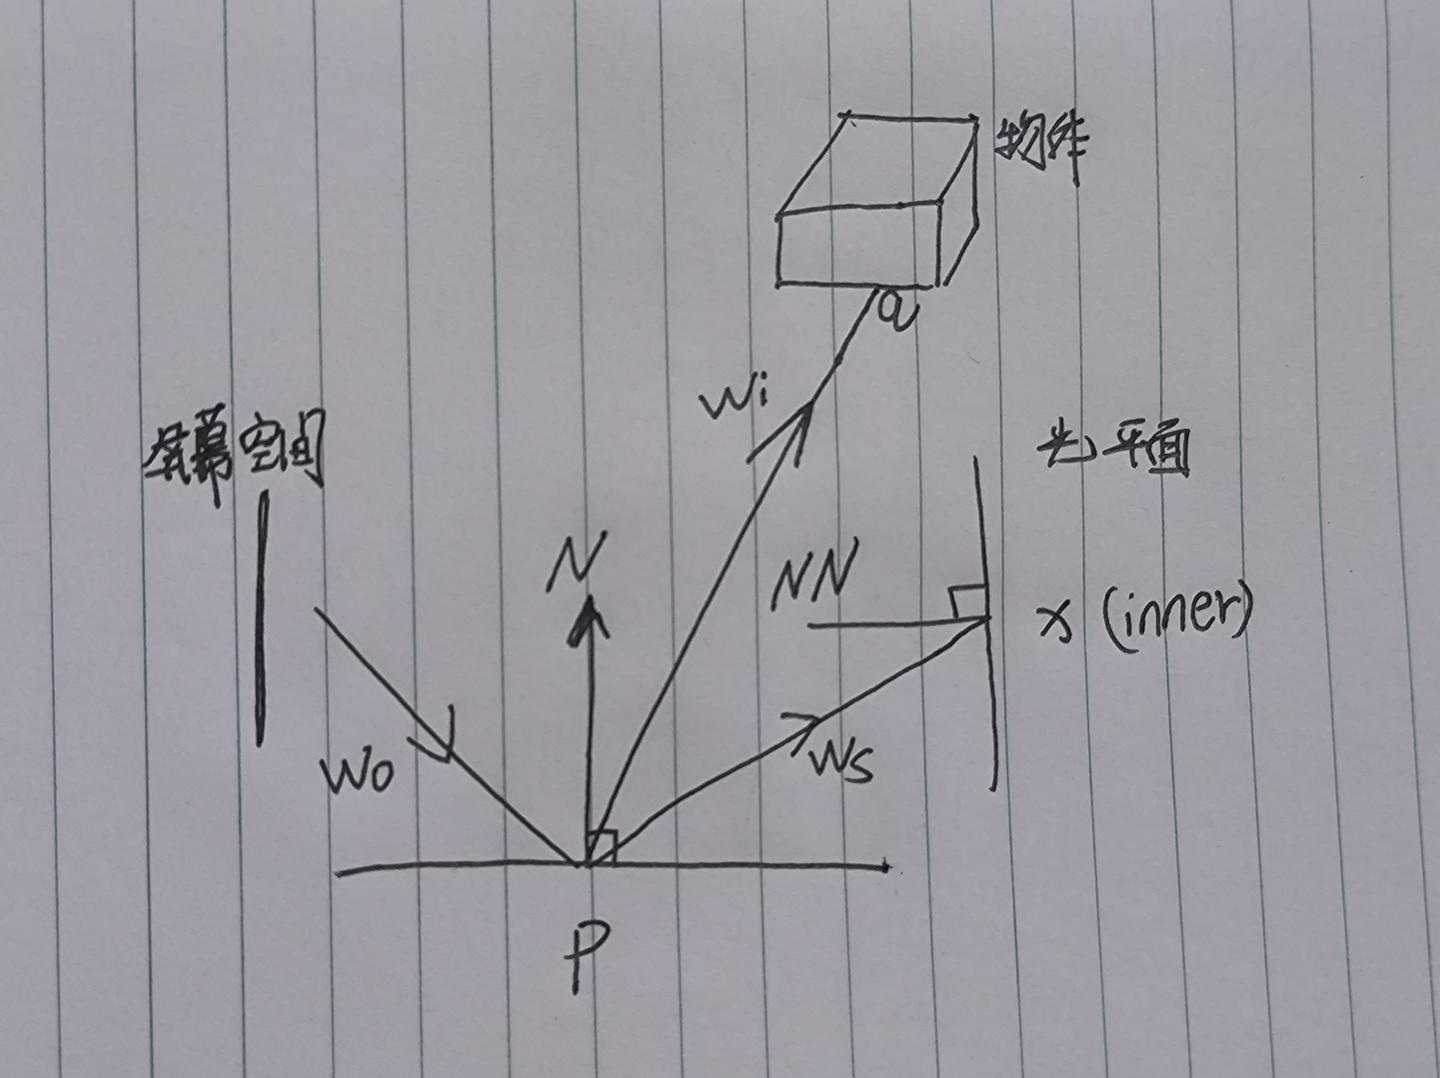 物件
a
Wi
屏幕空间
光平面
N
NN
x (inner)
Wo
Ws
P